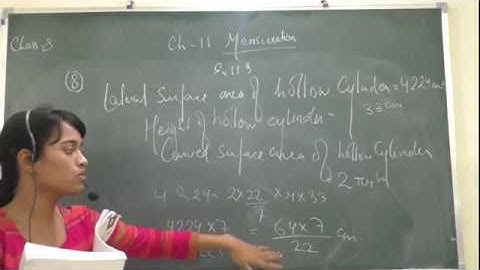 Class 8
Ch-11 Mensuration
Ex 11.3
(8)
Lateral Surface area of hollow Cylinder = 4224 cm²
Height of hollow cylinder = 33 cm
Curved surface area of hollow Cylinder
= 2πrh
4224 = 2 × 22/7 × r × 33
4224 × 7 = 64 × 7 / 22 cm